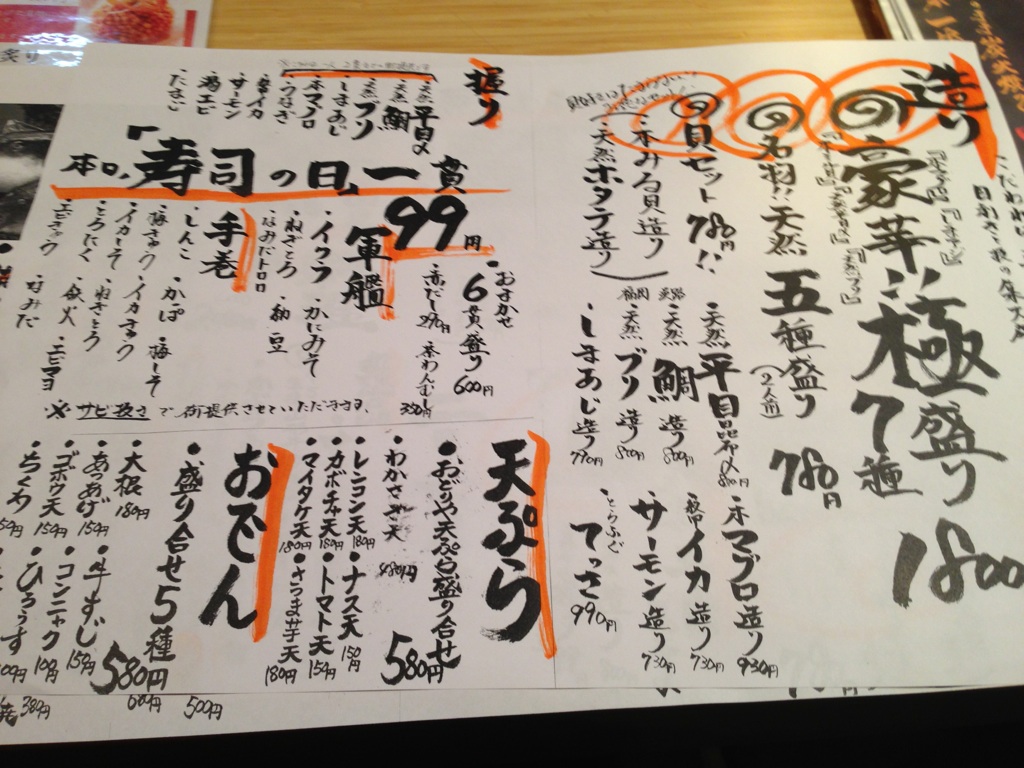 造り
豪華!!極盛り7種
1800
名物!!天然五種盛り
(2人前)
780円
貝セット 780円!!
本みる貝造り
天然ホタテ造り
天然平目昆布〆
天然鯛造り 800円
淡路
福岡
天然ブリ造り
しまあじ造り 770円
本マグロ造り 930円
イカ造り 730円
サーモン造り 730円
とらふぐ
てっさ 990円
握り
天然平目〆
天然鯛
天然ブリ
しまあじ
本マグロ
うなぎ
イカ
サーモン
エビ
たまご
本日、「寿司の日」一貫
99円
おまかせ
6貫盛り 600円
赤だし 290円
茶わんむし 350円
軍艦
・イクラ
・かにみそ
・ねぎとろ
・納豆
・なみだトロロ
手巻
・しんこ
・かっぱ
・梅きゅう
・梅しそ
・イカしそ
・イカきゅう
・とろたく
・ねぎとろ
・エビきゅう
・エビマヨ
・なみだ
※サビ抜きで御提供させていただきます。
天ぷら
・おどりや天ぷら盛り合せ
580円
・わかさぎ天
480円
・レンコン天 180円
・ナス天 150円
・カボチャ天 180円
・トマト天 150円
・マイタケ天 180円
・さつま芋天 180円
おでん
・盛り合せ5種
580円
・大根 180円
・牛すじ 150円
・あつあげ 150円
・コンニャク 100円
・ゴボウ天 150円
・ひろうす
・ちくわ
600円
500円
380円
炙り